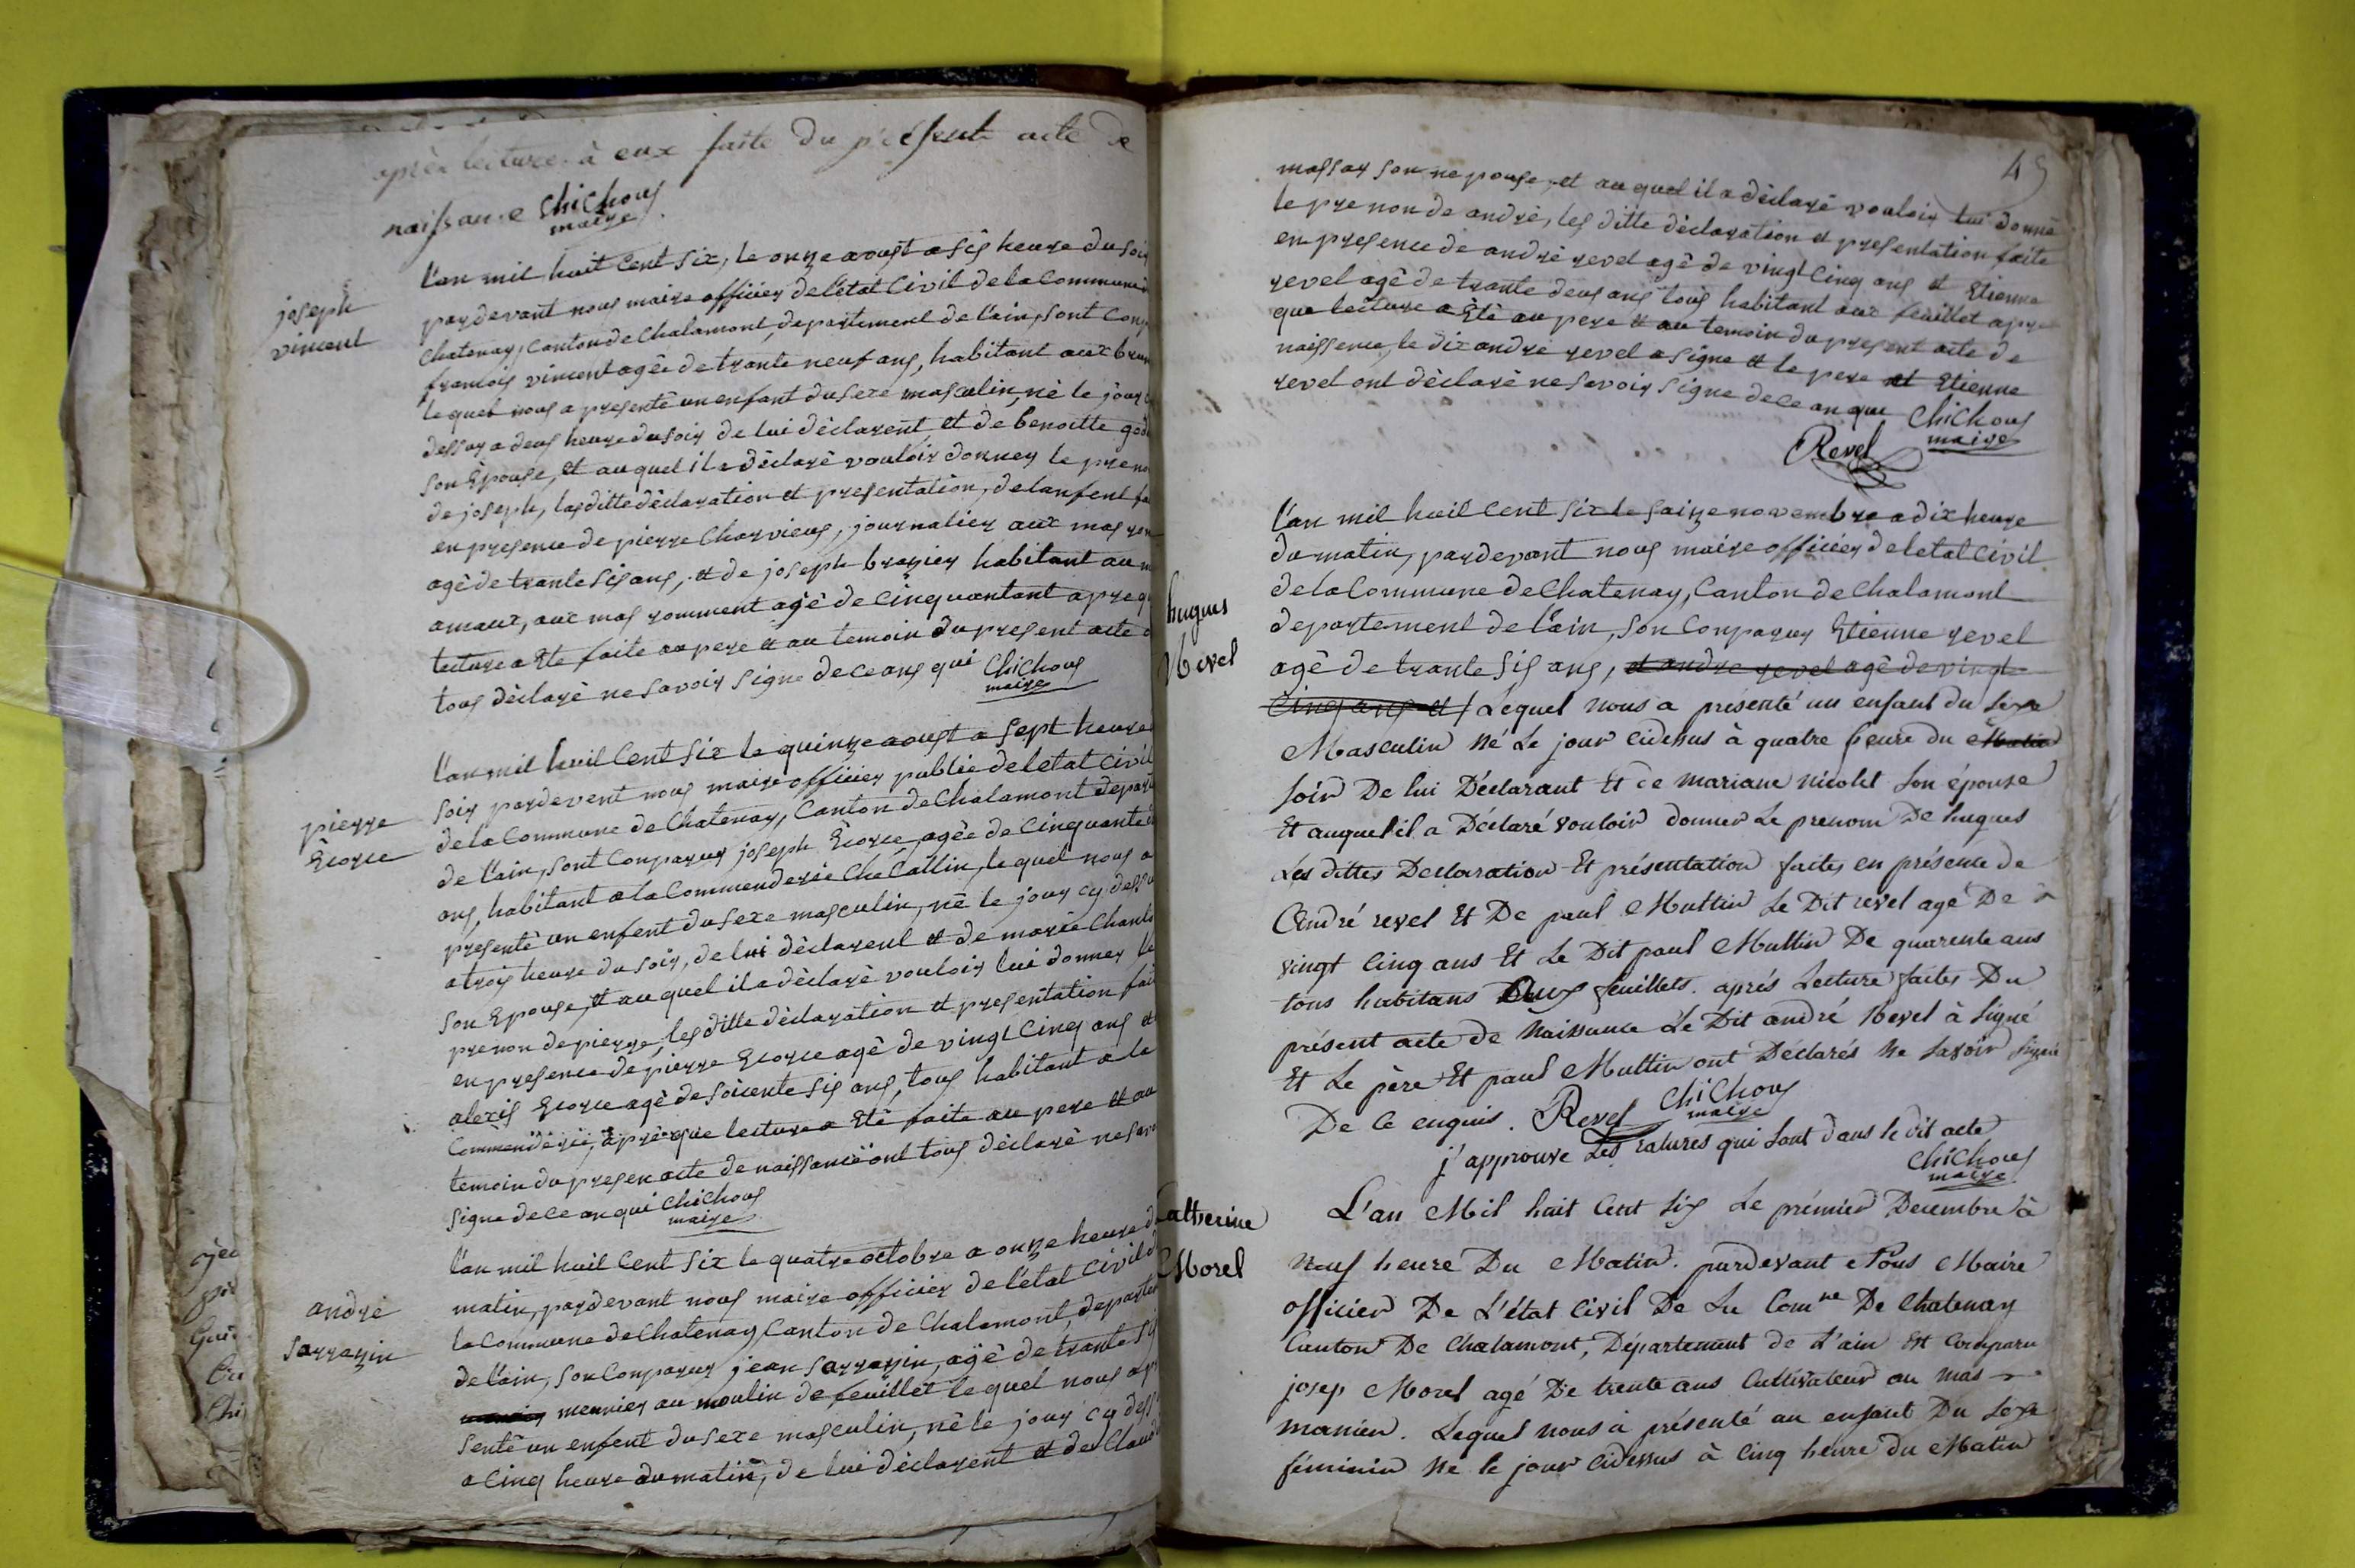 après lecture à eux faite du présent acte de
naissance Chichoux
maire
joseph
vincent
l'an mil huit Cent six, le onze aoust a sis heure du soir
pardevant nous maire officier de l'état Civil de la Commune
Chatenay, Canton de Chalamont, departement de l'ain, sont Conp
francois vincent agée de trante neuf ans, habitant aux brun
lequel nous a presenté un enfant du sexe masculin, né le jour
dessus a deus heure du soir de lui déclarent et de benoitte god
son Epouse, et auquel il a déclaré vouloir donner le preno
de joseph, las ditte déclaration et presentation, de lanfent fa
en presence de pierre Charvieus, journalier aux mas rom
agé de trante sis ans, et de joseph brazier habitant au m
amaux, aux mas romment agé de Cinquantant apre q
lecture a Ete faite au pere et au temoin du present acte
tous déclaré ne savoir signe de ce anqui Chichoux
maire
pierre
Ecorce
l'an mil huil Cent six le quinze aoust a sept heure
soir pardevent nous maire officier publie de letat Civil
de la Commune de Chatenay, Canton de Chalamont depart
de l'ain, sont Conparus joseph Ecorce, agée de Cinquante
ans, habitant a la Commenderie Ché Callin, le quel nous a
presenté un enfent du sexe masculin, né le jour cy dessu
a trois heure du soir, de lui déclarent et de marie Chant
son Epouse, et au quel il a déclaré vouloir lui donner le
prenon de pierre, les ditte déclaration et presentation fai
en presence de pierre Ecorce agé de vingt Cinq ans et
alexis Ecorce agé de soicente sis ans, tous habitant a la
Commenderie, aprèsque lecture a Eté faite au pere et au
temoin du presen acte de naissance ont tous déclaré ne sav
signe de ce an qui Chichoux
maire
andré
sarrazin
l'an mil huil Cent six le quatre octobre a onze heure d
matin, pardevant nous maire officier de l'état Civil d
la Commune de Chatenay Canton de Chalamont, departem
de l'ain, son Conparus jean sarrazin, agé de trante si
meunier au moulin de feuillet le quel nous a p
senté un enfent du sexe masculin, né le jour cy dess
a Cinq heure du matin, de lui déclarent et de Claud
45
massar son nepouse, et au quel il a déclaré vouloir lui donné
le prenon de andré, les ditte déclaration et presentation faite
en presence de andré revel agé de vingt Cinq ans et Etienne
revel agé de trante deus ans tous habitant aux feuillet apre
que lecture a Eté au pere et au temoin du present acte de
naissence, le dix andré revel a signe et le pere et Etienne
revel ont déclaré ne savoir signe de ce an que Chichoux
Revel maire
hugues
Revel
l'an mil huil Cent six le saize novembre a dix heure
du matin, pardevant nous maire officier de letat Civil
de la Commune de Chatenay, Canton de Chalamont
departement de l'ain, son Conparus Etienne revel
agé de trante sis ans, et andre revel agé de vingt
Cinq ans et Lequel nous a présenté un enfant du sexe
Masculin Né Le jour cidessus à quatre heure du Matin
soir De lui Déclarant Et de mariane nicolet son épouse
Et auquel il a Déclaré vouloir donner Le prenom De hugues
Les dittes Declaration Et présentation faites en présence de
André revel Et De paul Muttin Le Dit revel agé De
vingt cinq ans Et Le Dit paul Muttin De quarente ans
tous habitans Aux feuillets. aprés Lecture faites Du
présent acte de Naissance Le Dit andré Revel à signé
Et Le père Et paul Muttin ont Déclarés Ne savoir signé
De ce enquis. Revel Chichoux
maire
j'approuve Les ratures qui sont dans le dit acte
Chichoux
maire
Catherine
Morel
L'an Mil huit Cent six Le prémier Decembre à
neuf heure Du Matin. pardevant Nous Maire
officier De L'état Civil De La Comne De Chatenay
Canton De Chalamont, Département de L'ain Est Comparu
josep Morel agé De trente ans Cultivateur au mas
manien. Lequel nous à présenté un enfant Du sexe
féminin Ne le jour cidessus à cinq heure du Matin